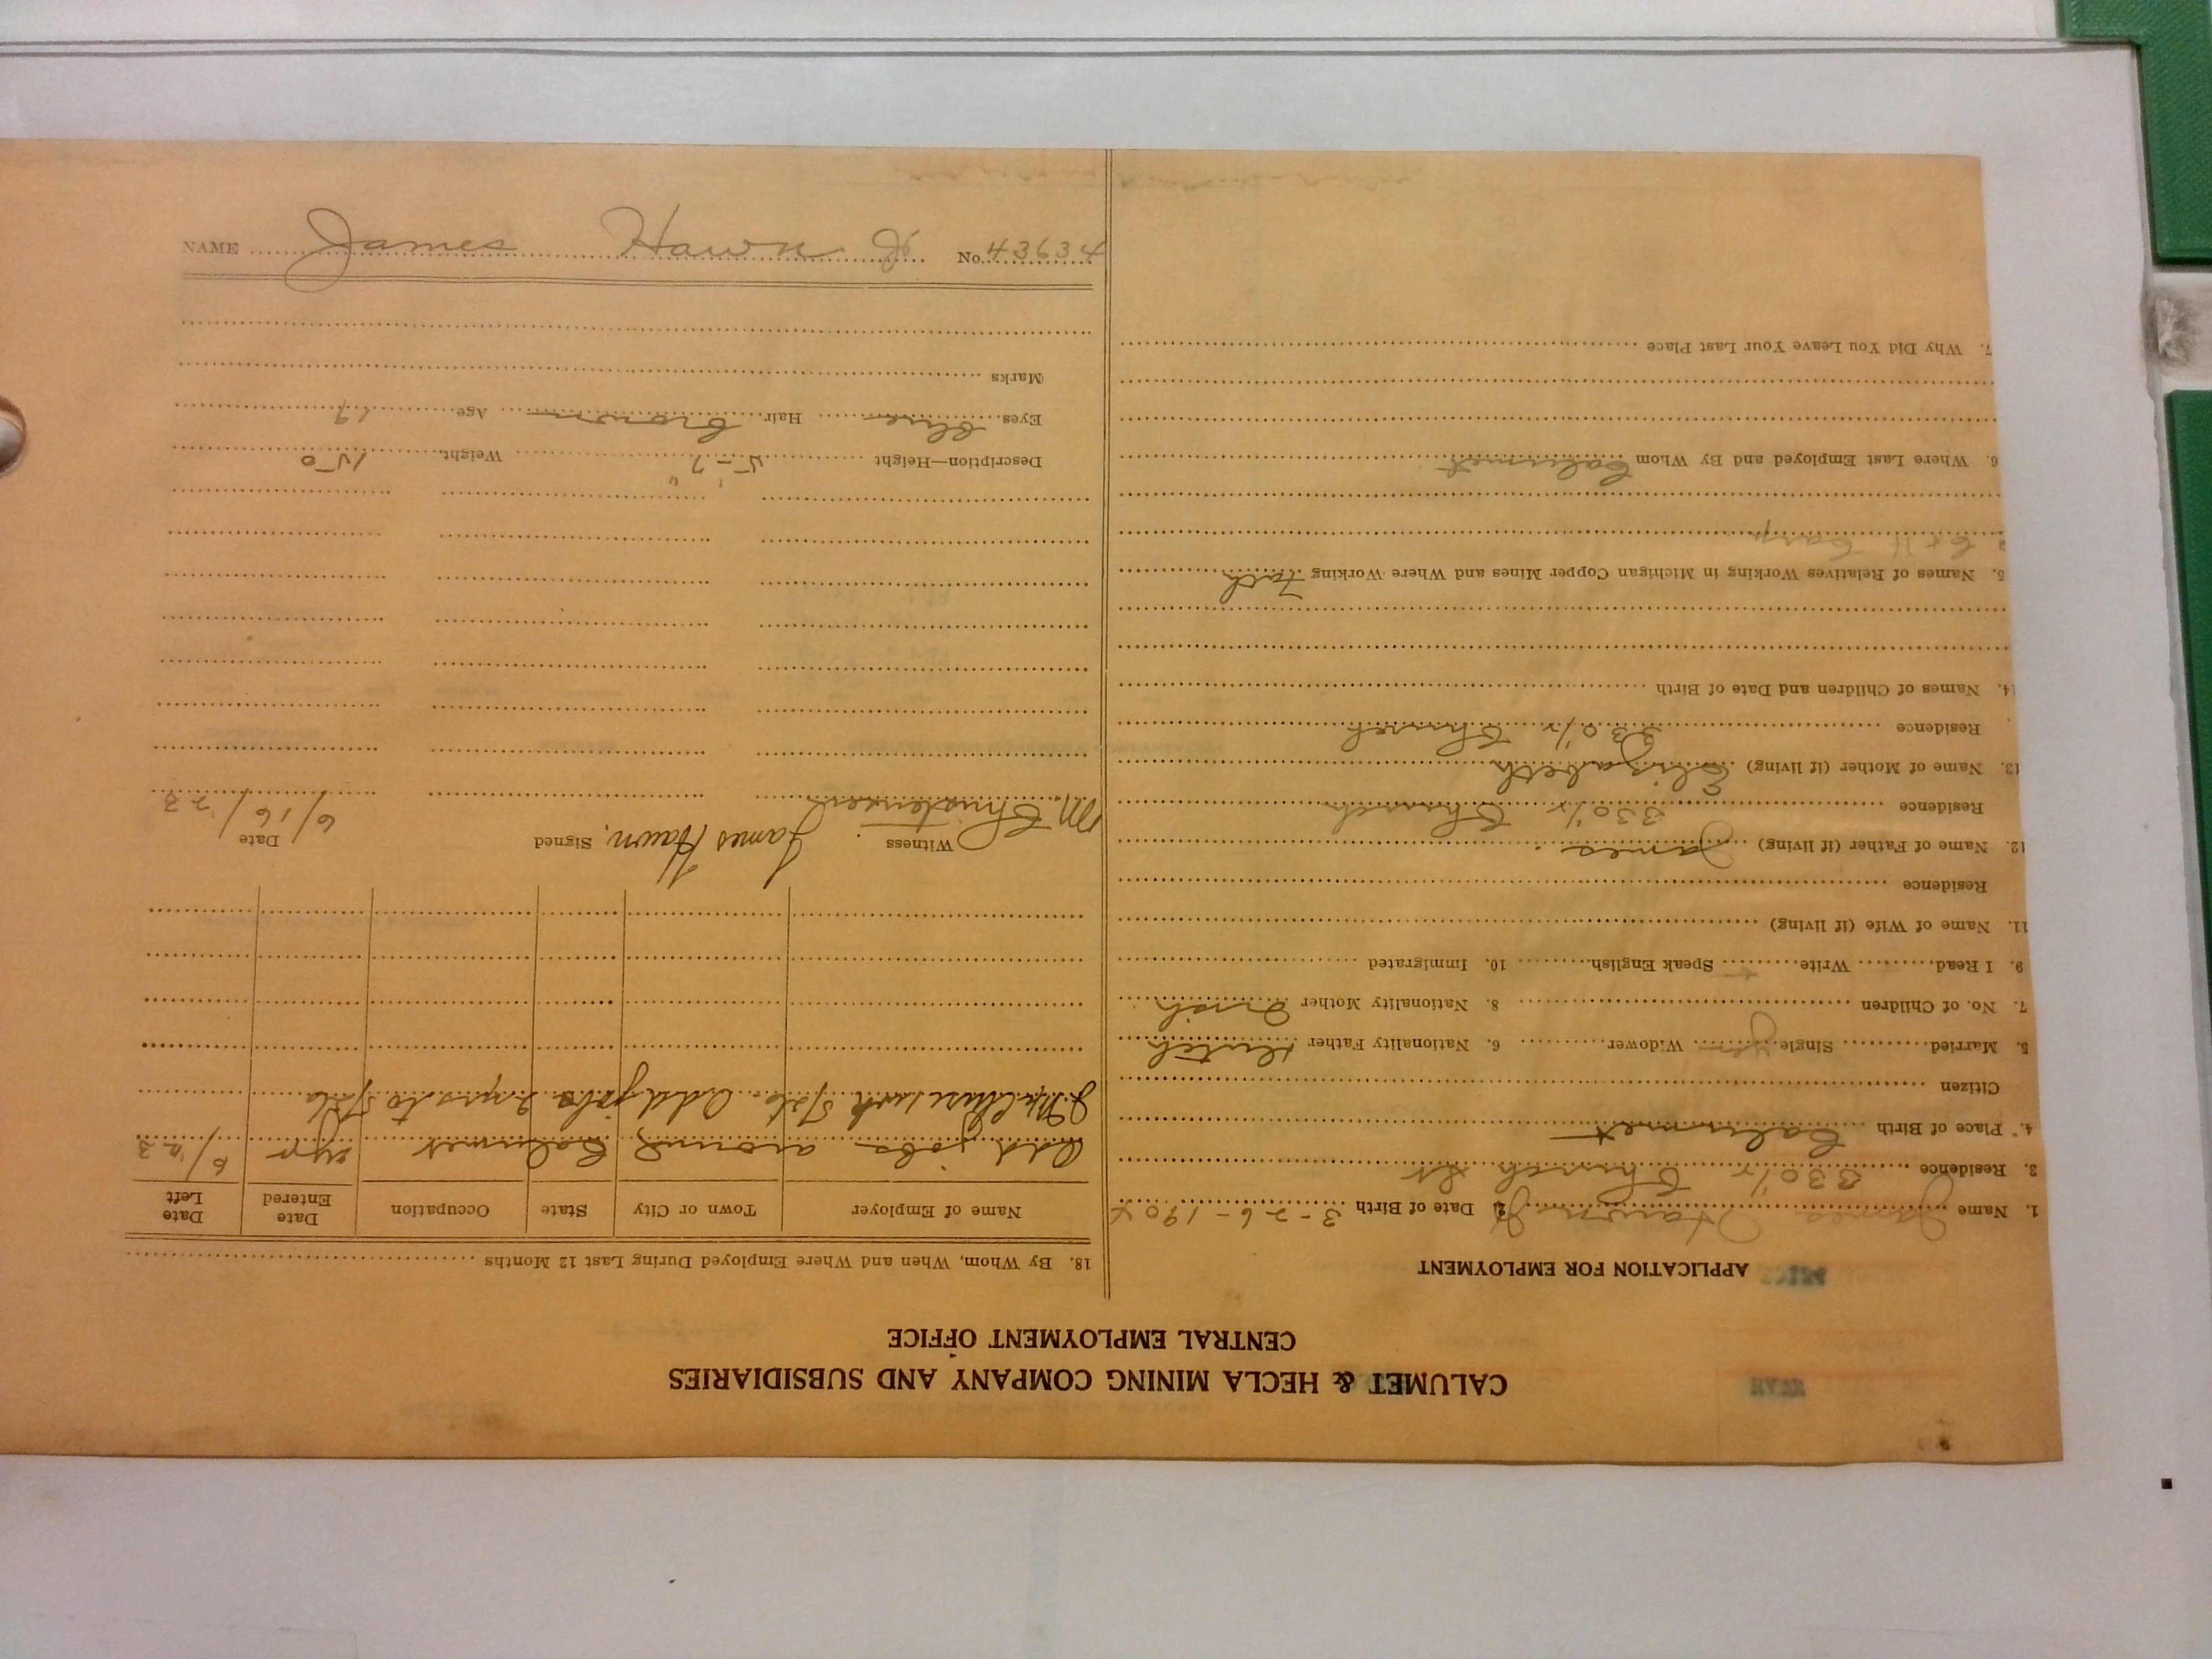 CALUMET & HECLA MINING COMPANY AND SUBSIDIARIES
CENTRAL EMPLOYMENT OFFICE
APPLICATION FOR EMPLOYMENT
1. Name James Hawn Jr Date of Birth 3-26-1904
3. Residence 330 1/2 Church St
4. Place of Birth Calumet
Citizen
5. Married Single yes Widower 6. Nationality Father Dutch
7. No. of Children 8. Nationality Mother Irish
9. I Read Write Speak English 10. Immigrated
11. Name of Wife (if living)
Residence
12. Name of Father (if living) James
Residence 330 1/2 Church
13. Name of Mother (if living) Elizabeth
Residence 330 1/2 Church
14. Names of Children and Date of Birth
5. Names of Relatives Working in Michigan Copper Mines and Where Working Fath
C & H
6. Where Last Employed and By Whom Calumet
7. Why Did You Leave Your Last Place
18. By Whom, When and Where Employed During Last 12 Months
Name of Employer Town or City State Occupation Date Entered Date Left
Odd jobs around Calumet 6/23
Odd jobs to
Witness Signed Date
M. Christensen James Hawn. 6/16/23
Description—Height 5'-7" Weight 150
Eyes blue Hair brown Age 19
Marks
NAME James Hawn Jr No. 43634